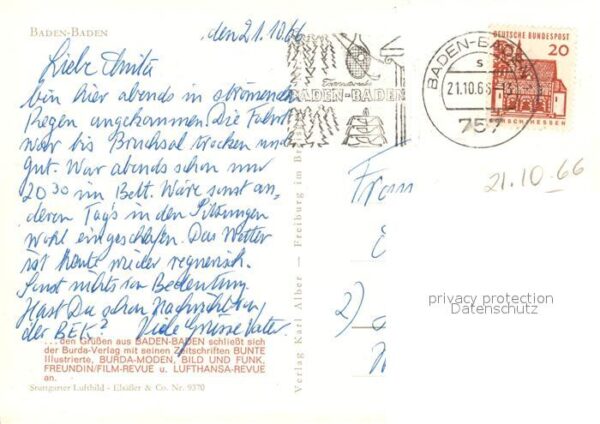 BADEN-BADEN
den 21.10.66
Liebe Anita
bin hier abends in strömenden
Regen angekommen. Die Fahrt
war bis Bruchsal trocken und
gut. War abends schon um
20 30 im Bett. Wäre sonst an-
deren Tags in den Sitzungen
wohl eingeschlafen. Das Wetter
ist heute wieder regnerisch.
Sonst nichts von Bedeutung.
Hast Du schon Nachricht von
der BEK? Viele Grüsse Vater.
...den Grüßen aus BADEN-BADEN schließt sich
der Burda-Verlag mit seinen Zeitschriften BUNTE
Illustrierte, BURDA-MODEN, BILD UND FUNK,
FREUNDIN/FILM-REVUE u. LUFTHANSA-REVUE
an.
Stuttgarter Luftbild - Elsäßer & Co. Nr. 9370
Verlag Karl Alber — Freiburg im Breisgau
BADEN-BADEN
BADEN-BADEN
s
21.10.66-13
757
DEUTSCHE BUNDESPOST
20
HESSEN
21.10.66
2)
privacy protection
Datenschutz